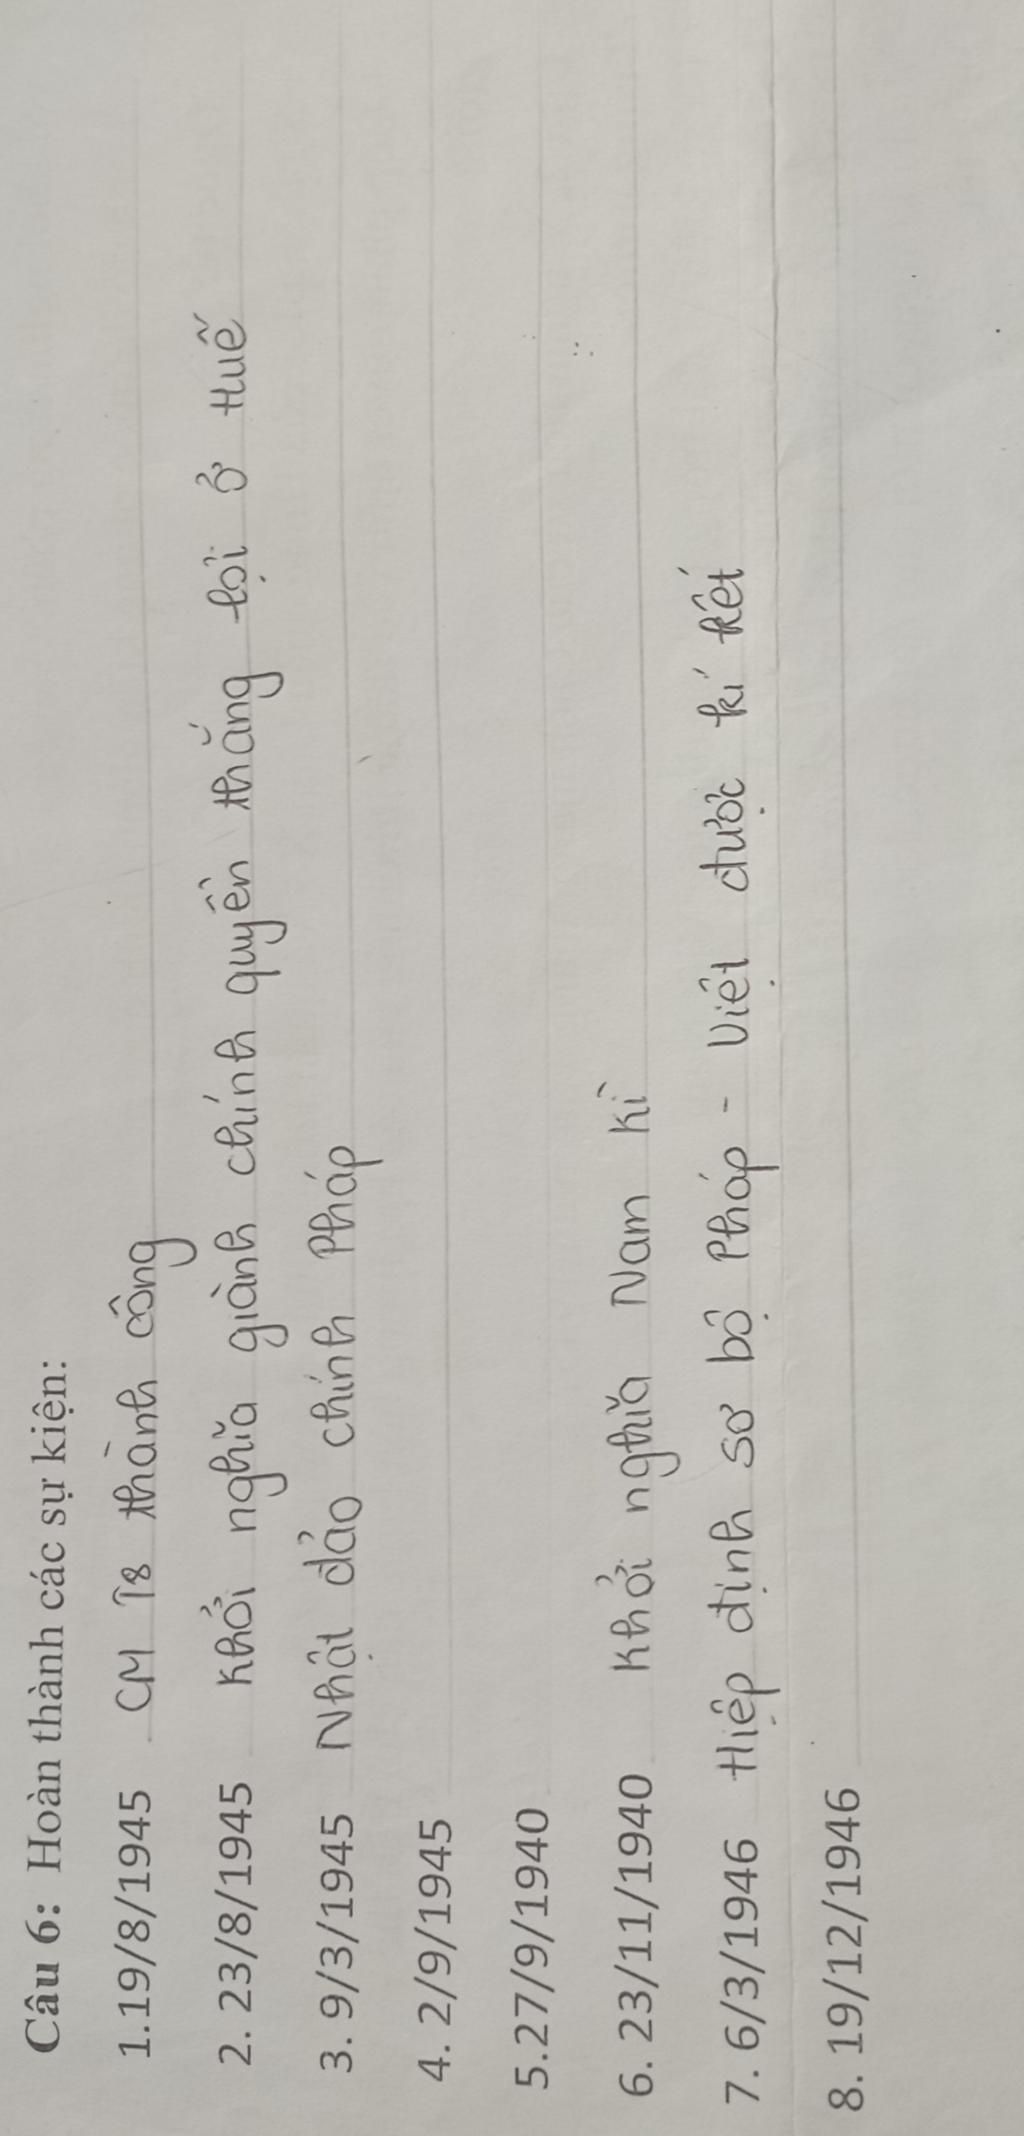 Câu 6: Hoàn thành các sự kiện:
1.19/8/1945 CM T8 thành công
2. 23/8/1945 Khởi nghĩa giành chính quyền thắng lợi ở Huế
3. 9/3/1945 Nhật đảo chính Pháp
4. 2/9/1945
5.27/9/1940
6. 23/11/1940 Khởi nghĩa Nam Kì
7. 6/3/1946 Hiệp định sơ bộ Pháp - Việt được kí kết
8. 19/12/1946